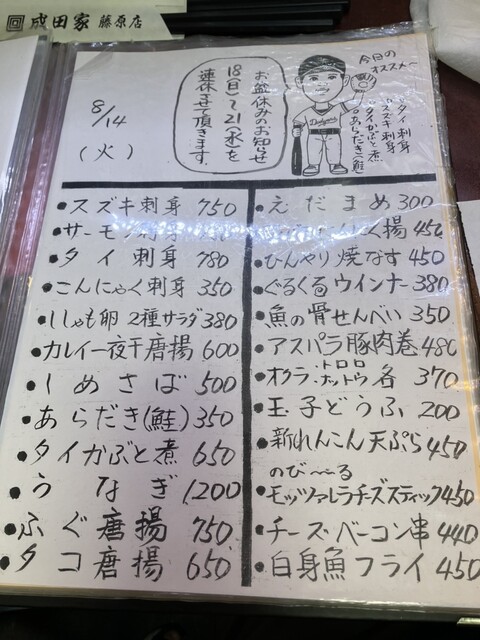 成田家 藤原店
8/14
(火)
お盆休みのお知らせ
18(日)〜21(水)を
連休させて頂きます。
今日の
オススメ〜
・タイ刺身
・スズキ刺身
・タイかぶと煮
・あらだき(鮭)
Dodgers
●スズキ刺身 750
●サーモン刺身
●タイ刺身 780
●こんにゃく刺身 350
●ししゃも卵 2種サラダ 380
●カレイ一夜干唐揚 600
●しめさば 500
●あらだき(鮭) 350
●タイかぶと煮 650
●うなぎ 1200
●ふぐ唐揚 750
●タコ唐揚 650
●えだまめ 300
揚 450
●ひんやり焼なす 450
●ぐるぐるウインナー 380
●魚の骨せんべい 350
●アスパラ豚肉巻 480
●オクラ・トロロ・ナットウ各 370
●玉子どうふ 200
●新れんこん天ぷら 450
●のび〜〜る
モッツァレラチーズスティック 450
●チーズ・ベーコン串 440
●白身魚フライ 450